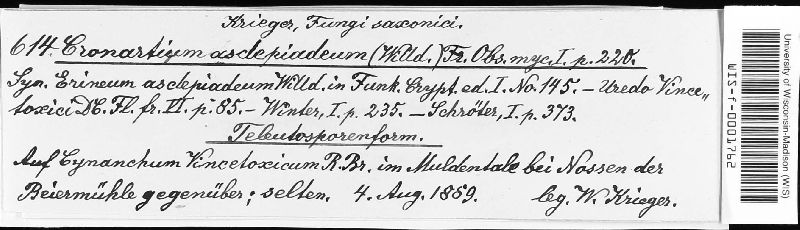 Krieger, Fungi saxonici.
614. Cronartium asclepiadeum (Willd.) Fr. Obs. myc. I. p. 220.
Syn. Erineum asclepiadeum Willd. in Funk. Crypt. ed. I. No. 145. – Uredo Vince„
toxici DC. Fl. fr. VI. p. 85. – Winter, I. p. 235. – Schröter, I, p. 373.
Teleutosporenform.
Auf Cynanchum Vincetoxicum R. Br. im Muldentale bei Nossen der
Beiermühle gegenüber; selten. 4. Aug. 1889. leg. W. Krieger.
University of Wisconsin-Madison (WIS)
WIS-f-0001762